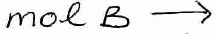 mol B ⟶